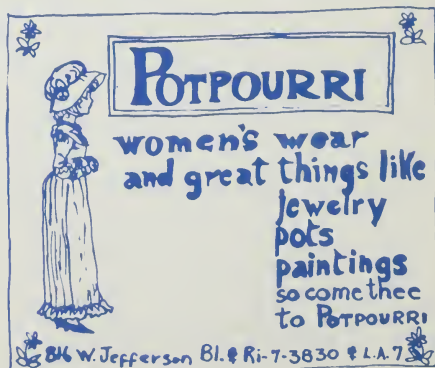 POTPOURRI
women's wear
and great things like
jewelry
pots
paintings
so come thee
to POTPOURRI
816 W. Jefferson Bl. Ri-7-3830 L.A. 7